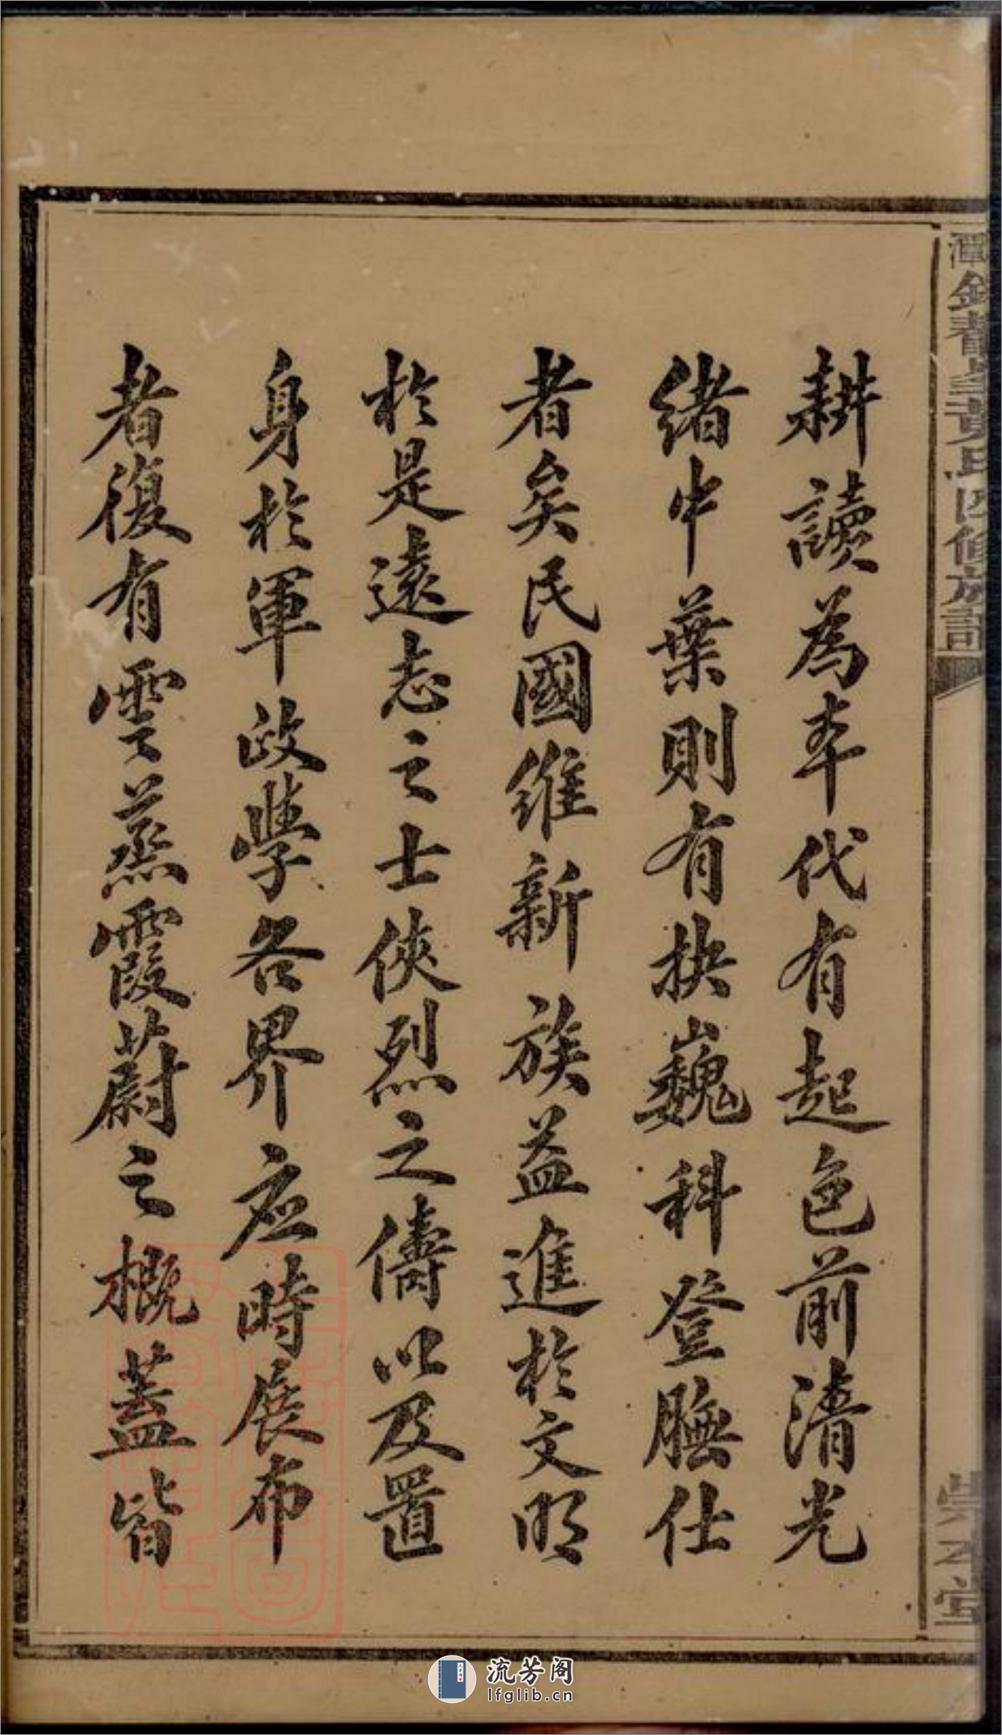 耕讀為本代有起色前清光
緒中葉則有抉巍科登膴仕
者矣民國維新族益進於文明
於是遠志之士俠烈之儔以及置
身於軍政學各界應時展布
者復有雲蒸霞蔚之概蓋皆
黃氏四修族譜
崇本堂
流芳阁
lfglib.cn